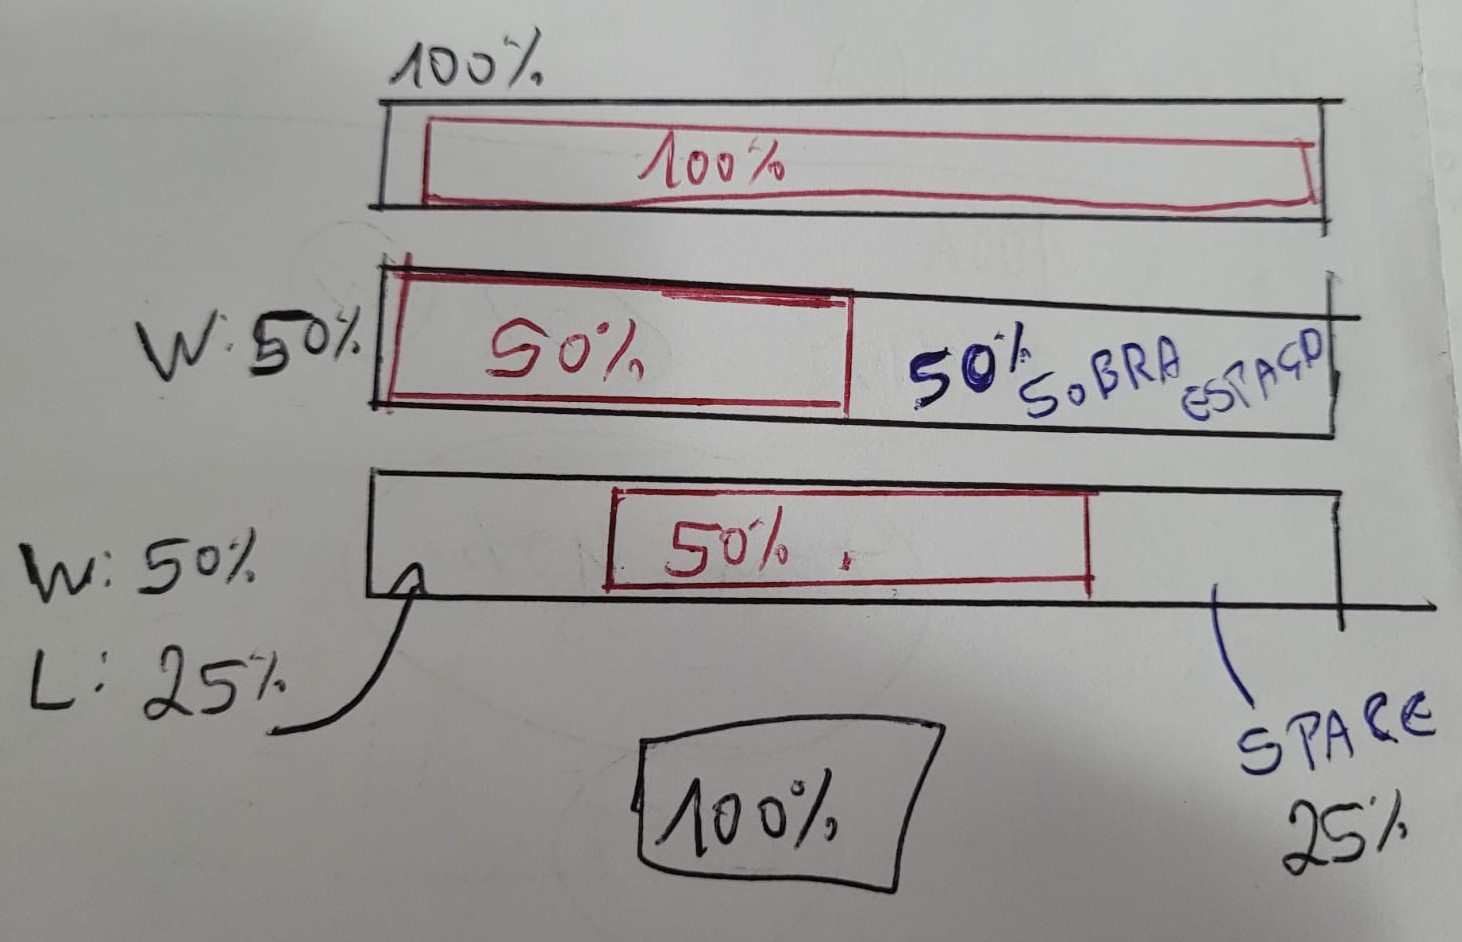 100%
100%
W: 50%
50%
50% SOBRA ESPAÇO
W: 50%
50%
L: 25%
SPARE
25%
100%